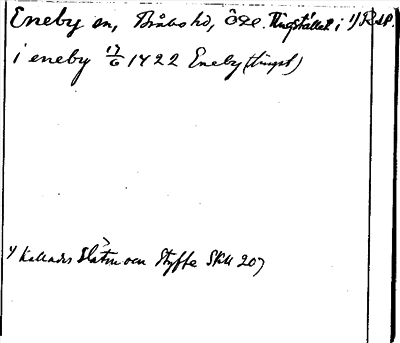 Eneby sn, Bråbo hd, Ögl. Tingstället i 1) RAP.
i eneby 17/6 1422 Eneby (tingst)
1) Kallades Slåttmon Styffe SKU 207